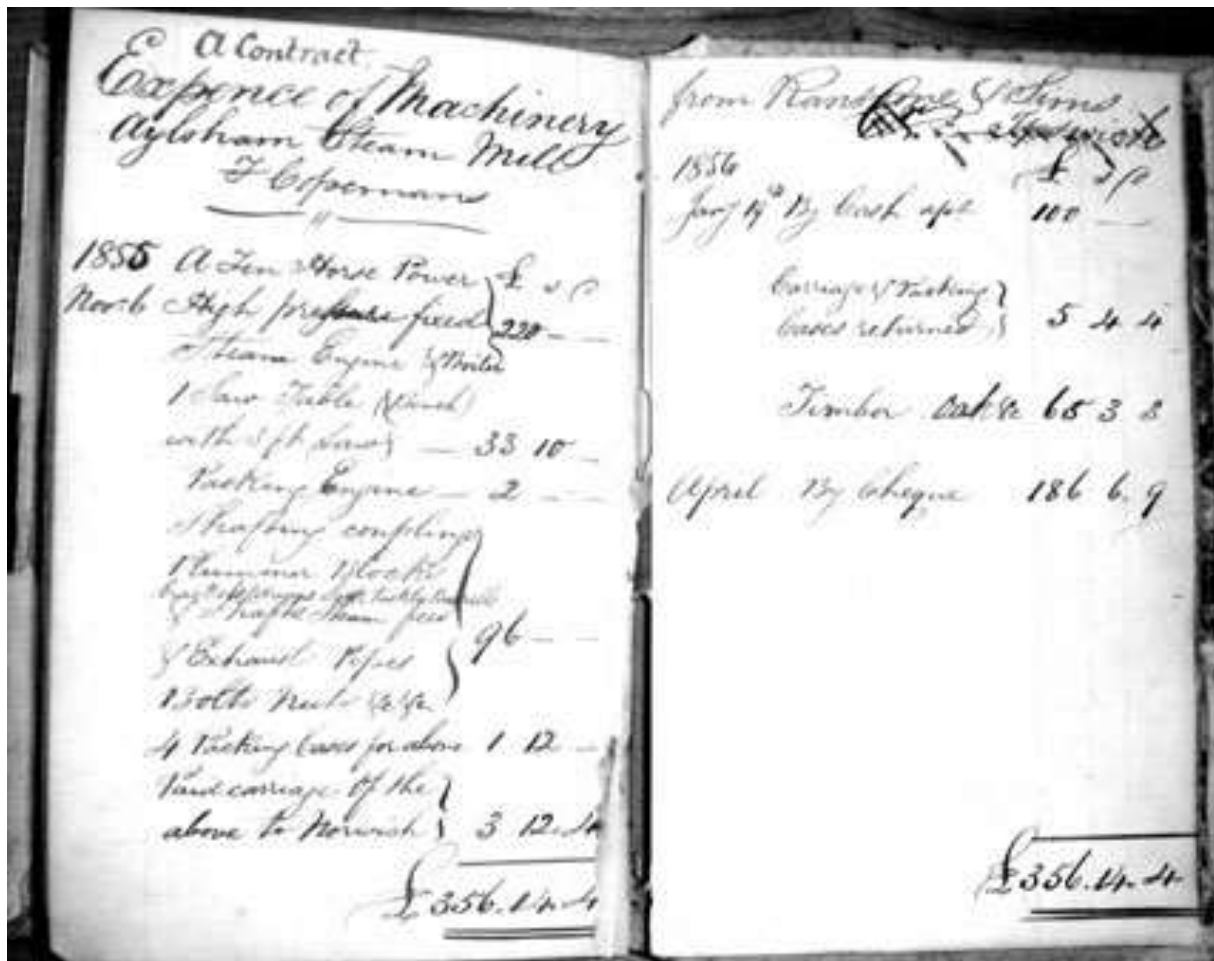 A Contract
Expence of Machinery
Aylsham Steam Mill
F Copeman
1855 A Ten Horse Power £ s d
Nov. 6 High pressure fixed 220 – –
Steam Engine & Boiler
1 Saw Table & Bench
with 3 ft Saw — 33 10 –
Packing Engine — 2 – –
Shafting couplings
Plummer Blocks
& Shafts Steam feed
96 – –
& Exhaust Pipes
Bolts Nuts &c &c
4 Packing Cases for above 1 12 –
Paid carriage of the
above to Norwich 3 12 4
£356.14.4
from Ransome & Sims
Ipswich
1856 £ s d
Jany 19th By Cash apt 100 —
Carriage & Packing
Cases returned 5 4 4
Timber Oak &c 65 3 3
April By Cheque 186 6 9
£356.14.4